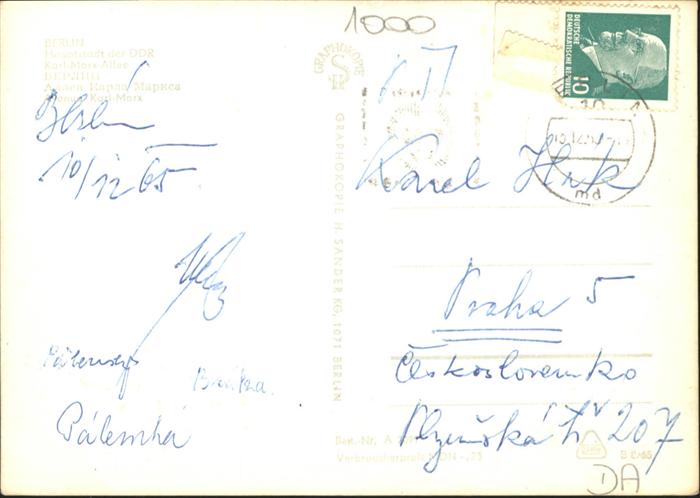 1000
BERLIN
Hauptstadt der DDR
Karl-Marx-Allee
БЕРЛИН
Аллея Карла Маркса
Avenue Karl-Marx
10/12 65
GRAPHOKOPIE
GRAPHOKOPIE H. SANDER KG, 1071 BERLIN
DEUTSCHE
DEMOKRATISCHE REPUBLIK
10
md
Karel Hrk
Praha 5
Československo
Plzeňská tř 207
Best.-Nr. A
Verbraucherpreis MDN -,25
B 6/65
DA